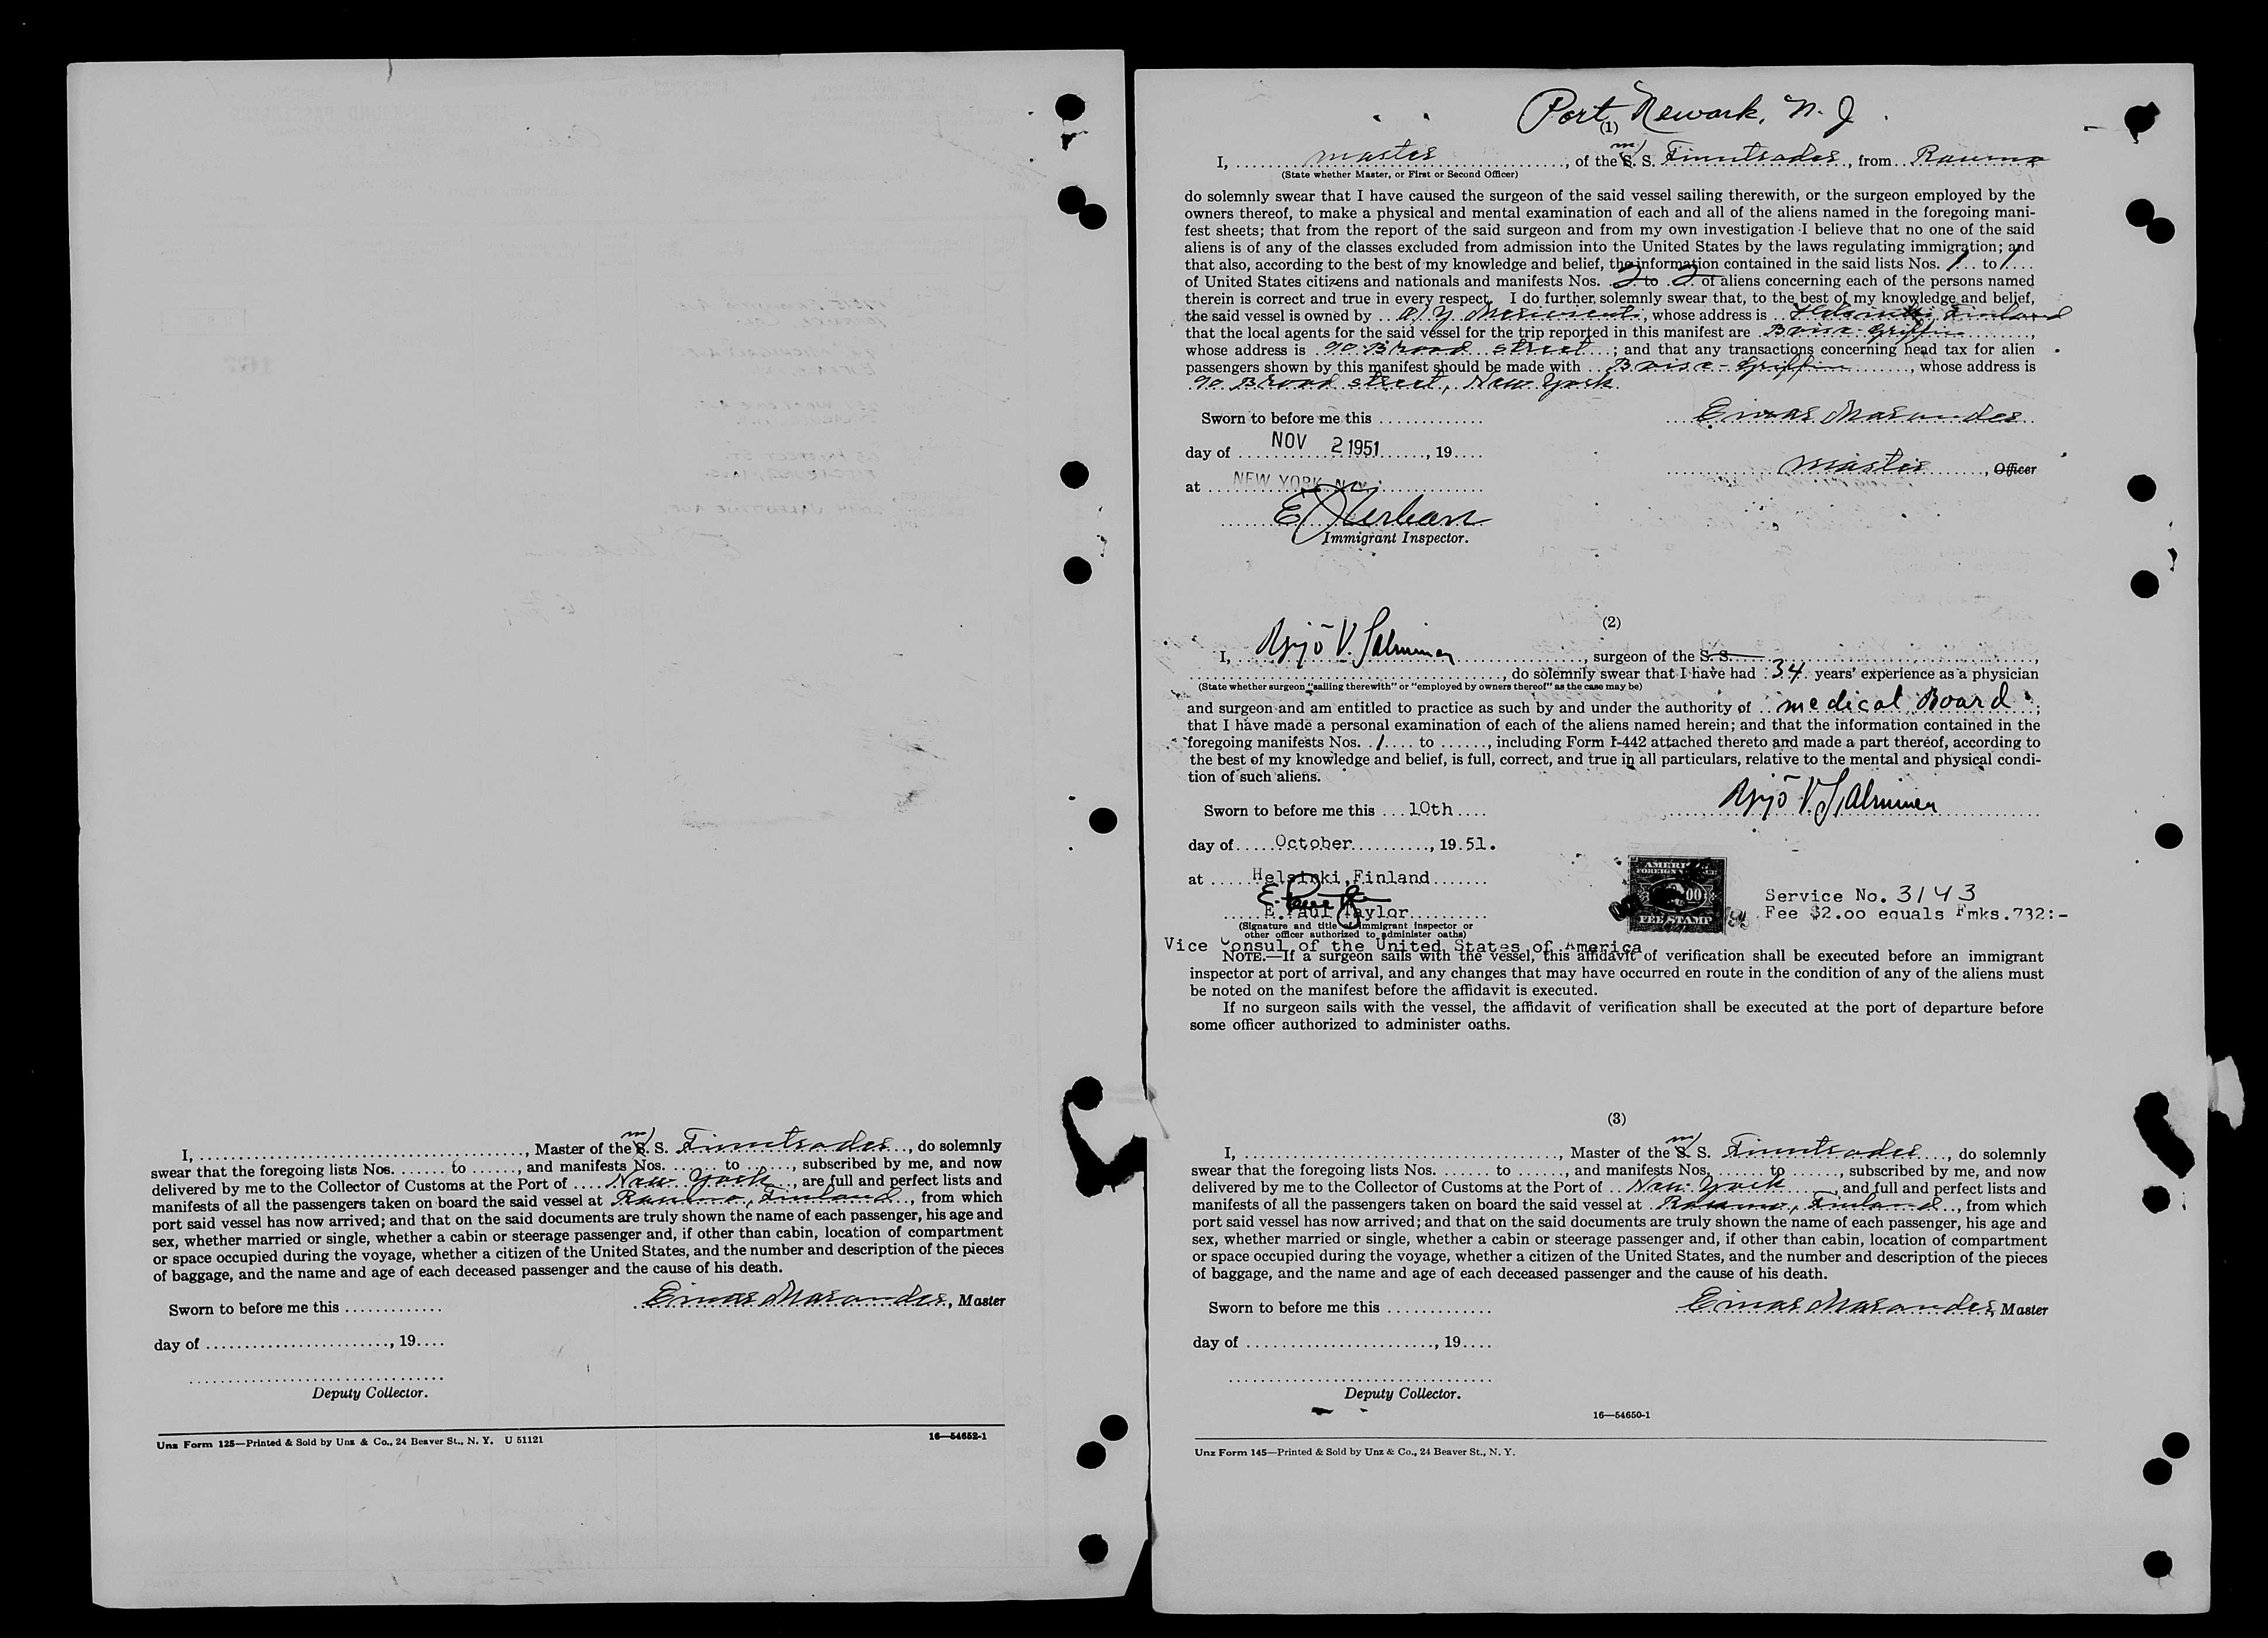 I, ......, Master of the M/S. S. Finntrader, do solemnly
swear that the foregoing lists Nos. ...... to ......, and manifests Nos. ...... to ......, subscribed by me, and now
delivered by me to the Collector of Customs at the Port of New York, are full and perfect lists and
manifests of all the passengers taken on board the said vessel at Rauma, Finland, from which
port said vessel has now arrived; and that on the said documents are truly shown the name of each passenger, his age and
sex, whether married or single, whether a cabin or steerage passenger and, if other than cabin, location of compartment
or space occupied during the voyage, whether a citizen of the United States, and the number and description of the pieces
of baggage, and the name and age of each deceased passenger and the cause of his death.
Sworn to before me this ............. Einar Marander, Master
day of ........................, 19....
Deputy Collector.
Unz Form 125—Printed & Sold by Unz & Co., 24 Beaver St., N. Y. U 51121 16—54652-1
Port Newark, N. J.
(1)
I, Master, of the M/S. S. Finntrader, from Rauma
(State whether Master, or First or Second Officer)
do solemnly swear that I have caused the surgeon of the said vessel sailing therewith, or the surgeon employed by the
owners thereof, to make a physical and mental examination of each and all of the aliens named in the foregoing mani-
fest sheets; that from the report of the said surgeon and from my own investigation I believe that no one of the said
aliens is of any of the classes excluded from admission into the United States by the laws regulating immigration; and
that also, according to the best of my knowledge and belief, the information contained in the said lists Nos. 1 to 1
of United States citizens and nationals and manifests Nos. 2 to 2 of aliens concerning each of the persons named
therein is correct and true in every respect. I do further solemnly swear that, to the best of my knowledge and belief,
the said vessel is owned by O/Y Merivienti, whose address is Helsinki, Finland
that the local agents for the said vessel for the trip reported in this manifest are Boise-Griffin,
whose address is 90 Broad street; and that any transactions concerning head tax for alien
passengers shown by this manifest should be made with Boise-Griffin, whose address is
90 Broad street, New York.
Sworn to before me this ............. Einar Marander
day of NOV 2 1951, 19....
Master, Officer
at NEW YORK, N.Y.
Immigrant Inspector.
(2)
I, Yrjö V. Salminen, surgeon of the S. S.
, do solemnly swear that I have had 34 years' experience as a physician
(State whether surgeon "sailing therewith" or "employed by owners thereof" as the case may be)
and surgeon and am entitled to practice as such by and under the authority of medical Board;
that I have made a personal examination of each of the aliens named herein; and that the information contained in the
foregoing manifests Nos. 1 to ......, including Form I-442 attached thereto and made a part thereof, according to
the best of my knowledge and belief, is full, correct, and true in all particulars, relative to the mental and physical condi-
tion of such aliens.
Sworn to before me this 10th Yrjö V. Salminen
day of October, 19 51.
at Helsinki, Finland
AMERICAN
FOREIGN SERVICE
FEE STAMP
Service No. 3143
Fee $2.00 equals Fmks.732:-
E. Paul Taylor
(Signature and title of immigrant inspector or
other officer authorized to administer oaths)
Vice Consul of the United States of America
NOTE.—If a surgeon sails with the vessel, this affidavit of verification shall be executed before an immigrant
inspector at port of arrival, and any changes that may have occurred en route in the condition of any of the aliens must
be noted on the manifest before the affidavit is executed.
If no surgeon sails with the vessel, the affidavit of verification shall be executed at the port of departure before
some officer authorized to administer oaths.
(3)
I, ......, Master of the M/S. S. Finntrader, do solemnly
swear that the foregoing lists Nos. ...... to ......, and manifests Nos. ...... to ......, subscribed by me, and now
delivered by me to the Collector of Customs at the Port of New York, and full and perfect lists and
manifests of all the passengers taken on board the said vessel at Rauma, Finland, from which
port said vessel has now arrived; and that on the said documents are truly shown the name of each passenger, his age and
sex, whether married or single, whether a cabin or steerage passenger and, if other than cabin, location of compartment
or space occupied during the voyage, whether a citizen of the United States, and the number and description of the pieces
of baggage, and the name and age of each deceased passenger and the cause of his death.
Sworn to before me this ............. Einar Marander, Master
day of ........................, 19....
Deputy Collector.
16—54650-1
Unz Form 145—Printed & Sold by Unz & Co., 24 Beaver St., N. Y.